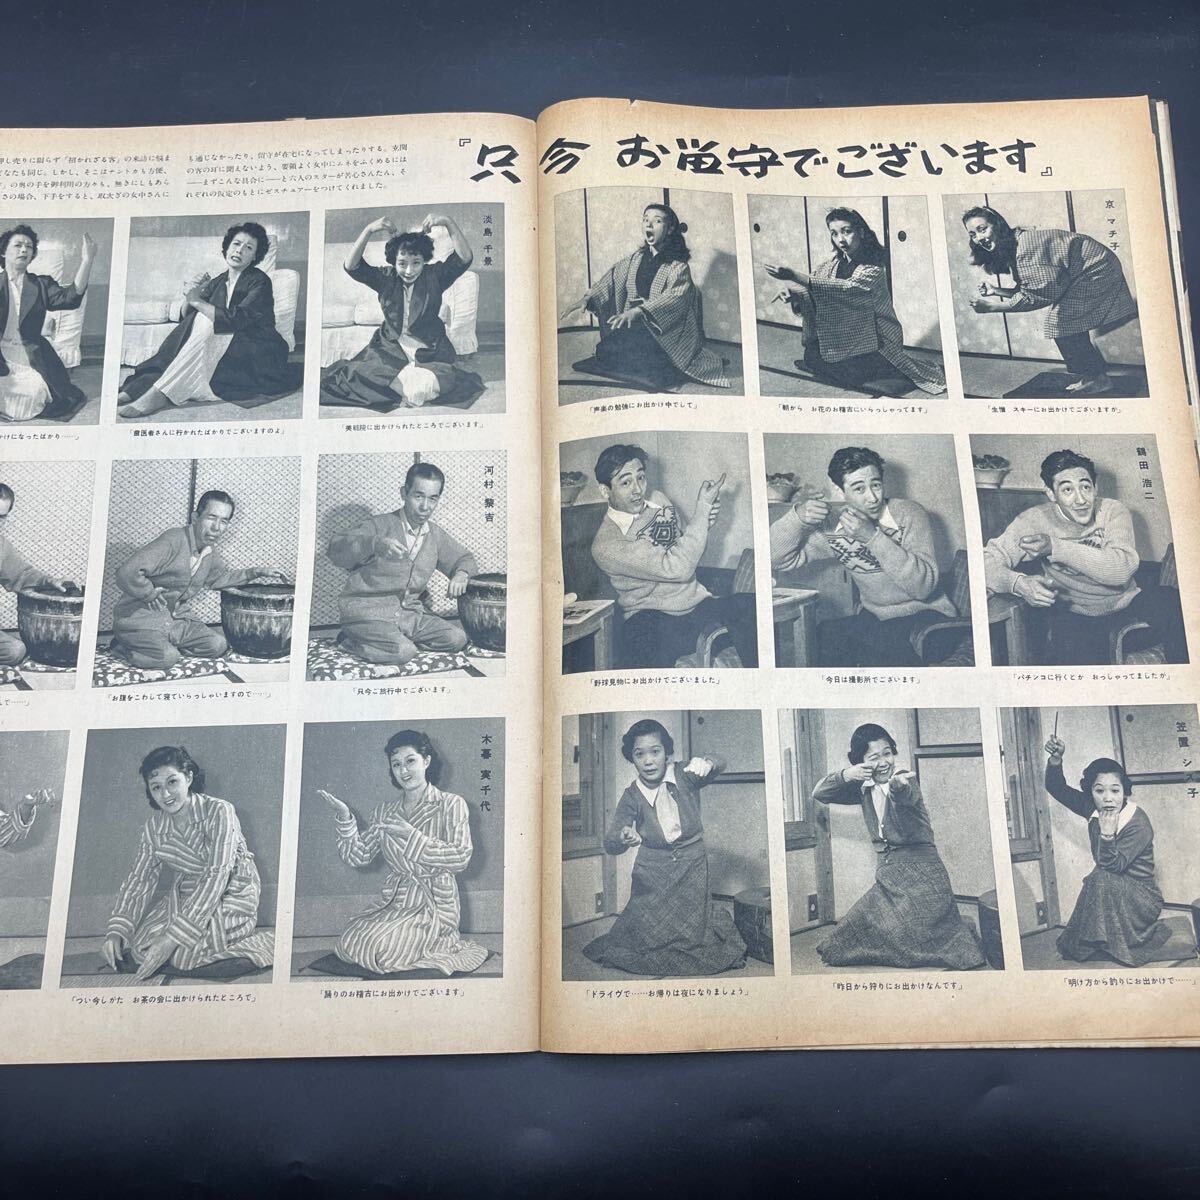 『只今 お留守でございます』
押し売りに限らず「招かれざる客」の来訪に悩ま
どなたも同じ。しかし、そこはナントカも方便、
の奥の手を御利用の方々も、無きにしもあら
さの場合、下手をすると、取次ぎの女中さんに
も通じなかったり、留守が在宅になってしまったりする。玄関
の客の耳に聞えないよう、要領よく女中にムネをふくめるには
――まずこんな具合に――と六人のスターが苦心さんたん、そ
れぞれの仮定のもとにゼスチュアーをつけてくれました。
京 マチ子
「声楽の勉強にお出かけ中でして」
「朝から お花のお稽古にいらっしゃってます」
「生憎 スキーにお出かけでございますが」
鶴田 浩二
「野球見物にお出かけでございました」
「今日は撮影所でございます」
「パチンコに行くとか おっしゃってましたが」
笠置 シズ子
「ドライヴで……お帰りは夜になりましょう」
「昨日から狩りにお出かけなんです」
「明け方から釣りにお出かけで……」
淡島 千景
「美粧院に出かけられたところでございます」
「歯医者さんに行かれたばかりでございますのよ」
かけになったばかり……」
河村 黎吉
「只今ご旅行中でございます」
「お腹をこわして寝ていらっしゃいますので……」
で……」
木暮 実千代
「踊りのお稽古にお出かけでございます」
「つい今しがた お茶の会に出かけられたところで」